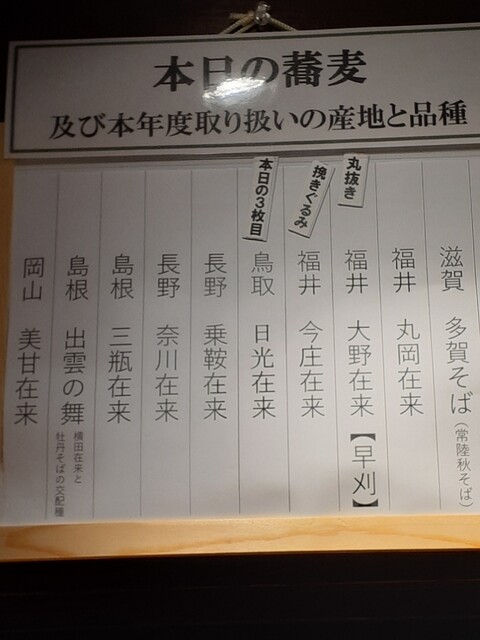 本日の蕎麦
及び本年度取り扱いの産地と品種
滋賀 多賀そば(常陸秋そば)
福井 丸岡在来
丸抜き
福井 大野在来【早刈】
挽きぐるみ
福井 今庄在来
本日の3枚目
鳥取 日光在来
長野 乗鞍在来
長野 奈川在来
島根 三瓶在来
島根 出雲の舞
横田在来と
牡丹そばの交配種
岡山 美甘在来